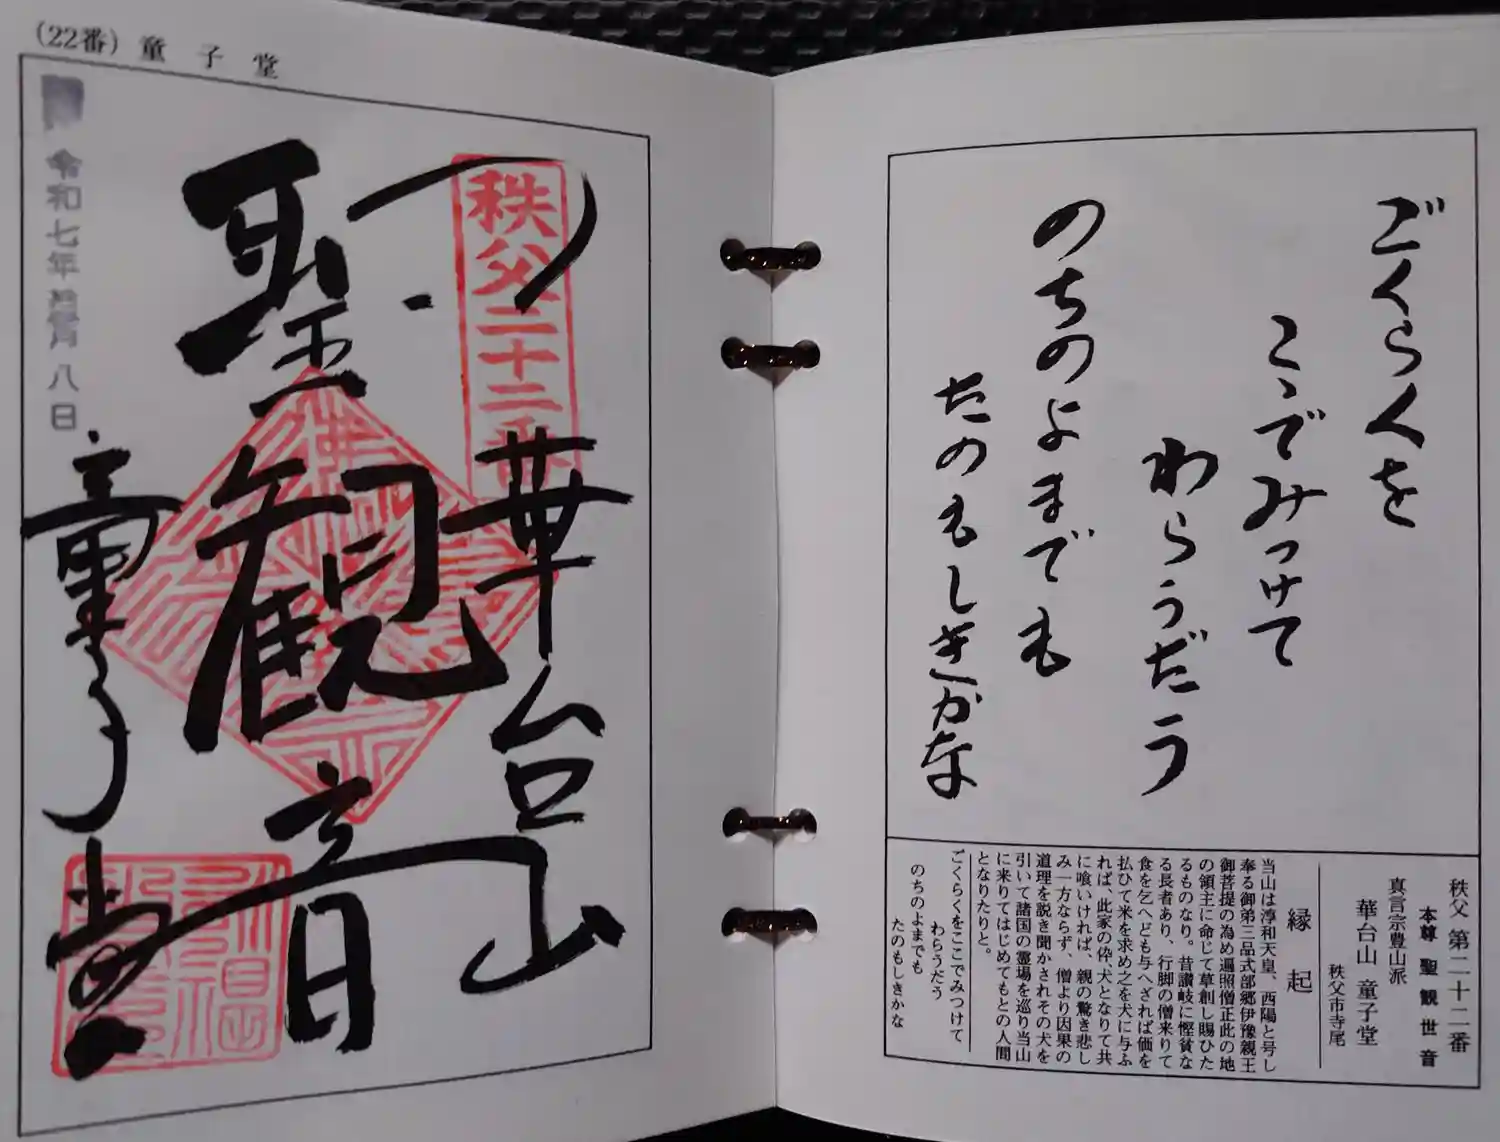 ごくらくを
こゝでみつけて
わらうだう
のちのよまでも
たのもしきかな
秩父 第二十二番
本尊 聖観世音
真言宗豊山派
華台山 童子堂
秩父市寺尾
縁起
当山は淳和天皇、西陽と号し
奉る御弟三品式部郷伊豫親王
御菩提の為め遍照僧正此の地
の領主に命じて草創し賜ひた
るものなり。昔讃岐に慳貧な
る長者あり、行脚の僧来りて
食を乞へども与へざれば価を
払ひて米を求め之を犬に与ふ
れば、此家の伜、犬となりて共
に喰いければ、親の驚き悲し
み一方ならず、僧より因果の
道理を説き聞かされその犬を
引いて諸国の霊場を巡り当山
に来りてはじめてもとの人間
となりたりと。
ごくらくをここでみつけて
わらうだう
のちのよまでも
たのもしきかな
(22番) 童子堂
秩父二十二番
華台山
聖観音
童子堂
令和七年 八日